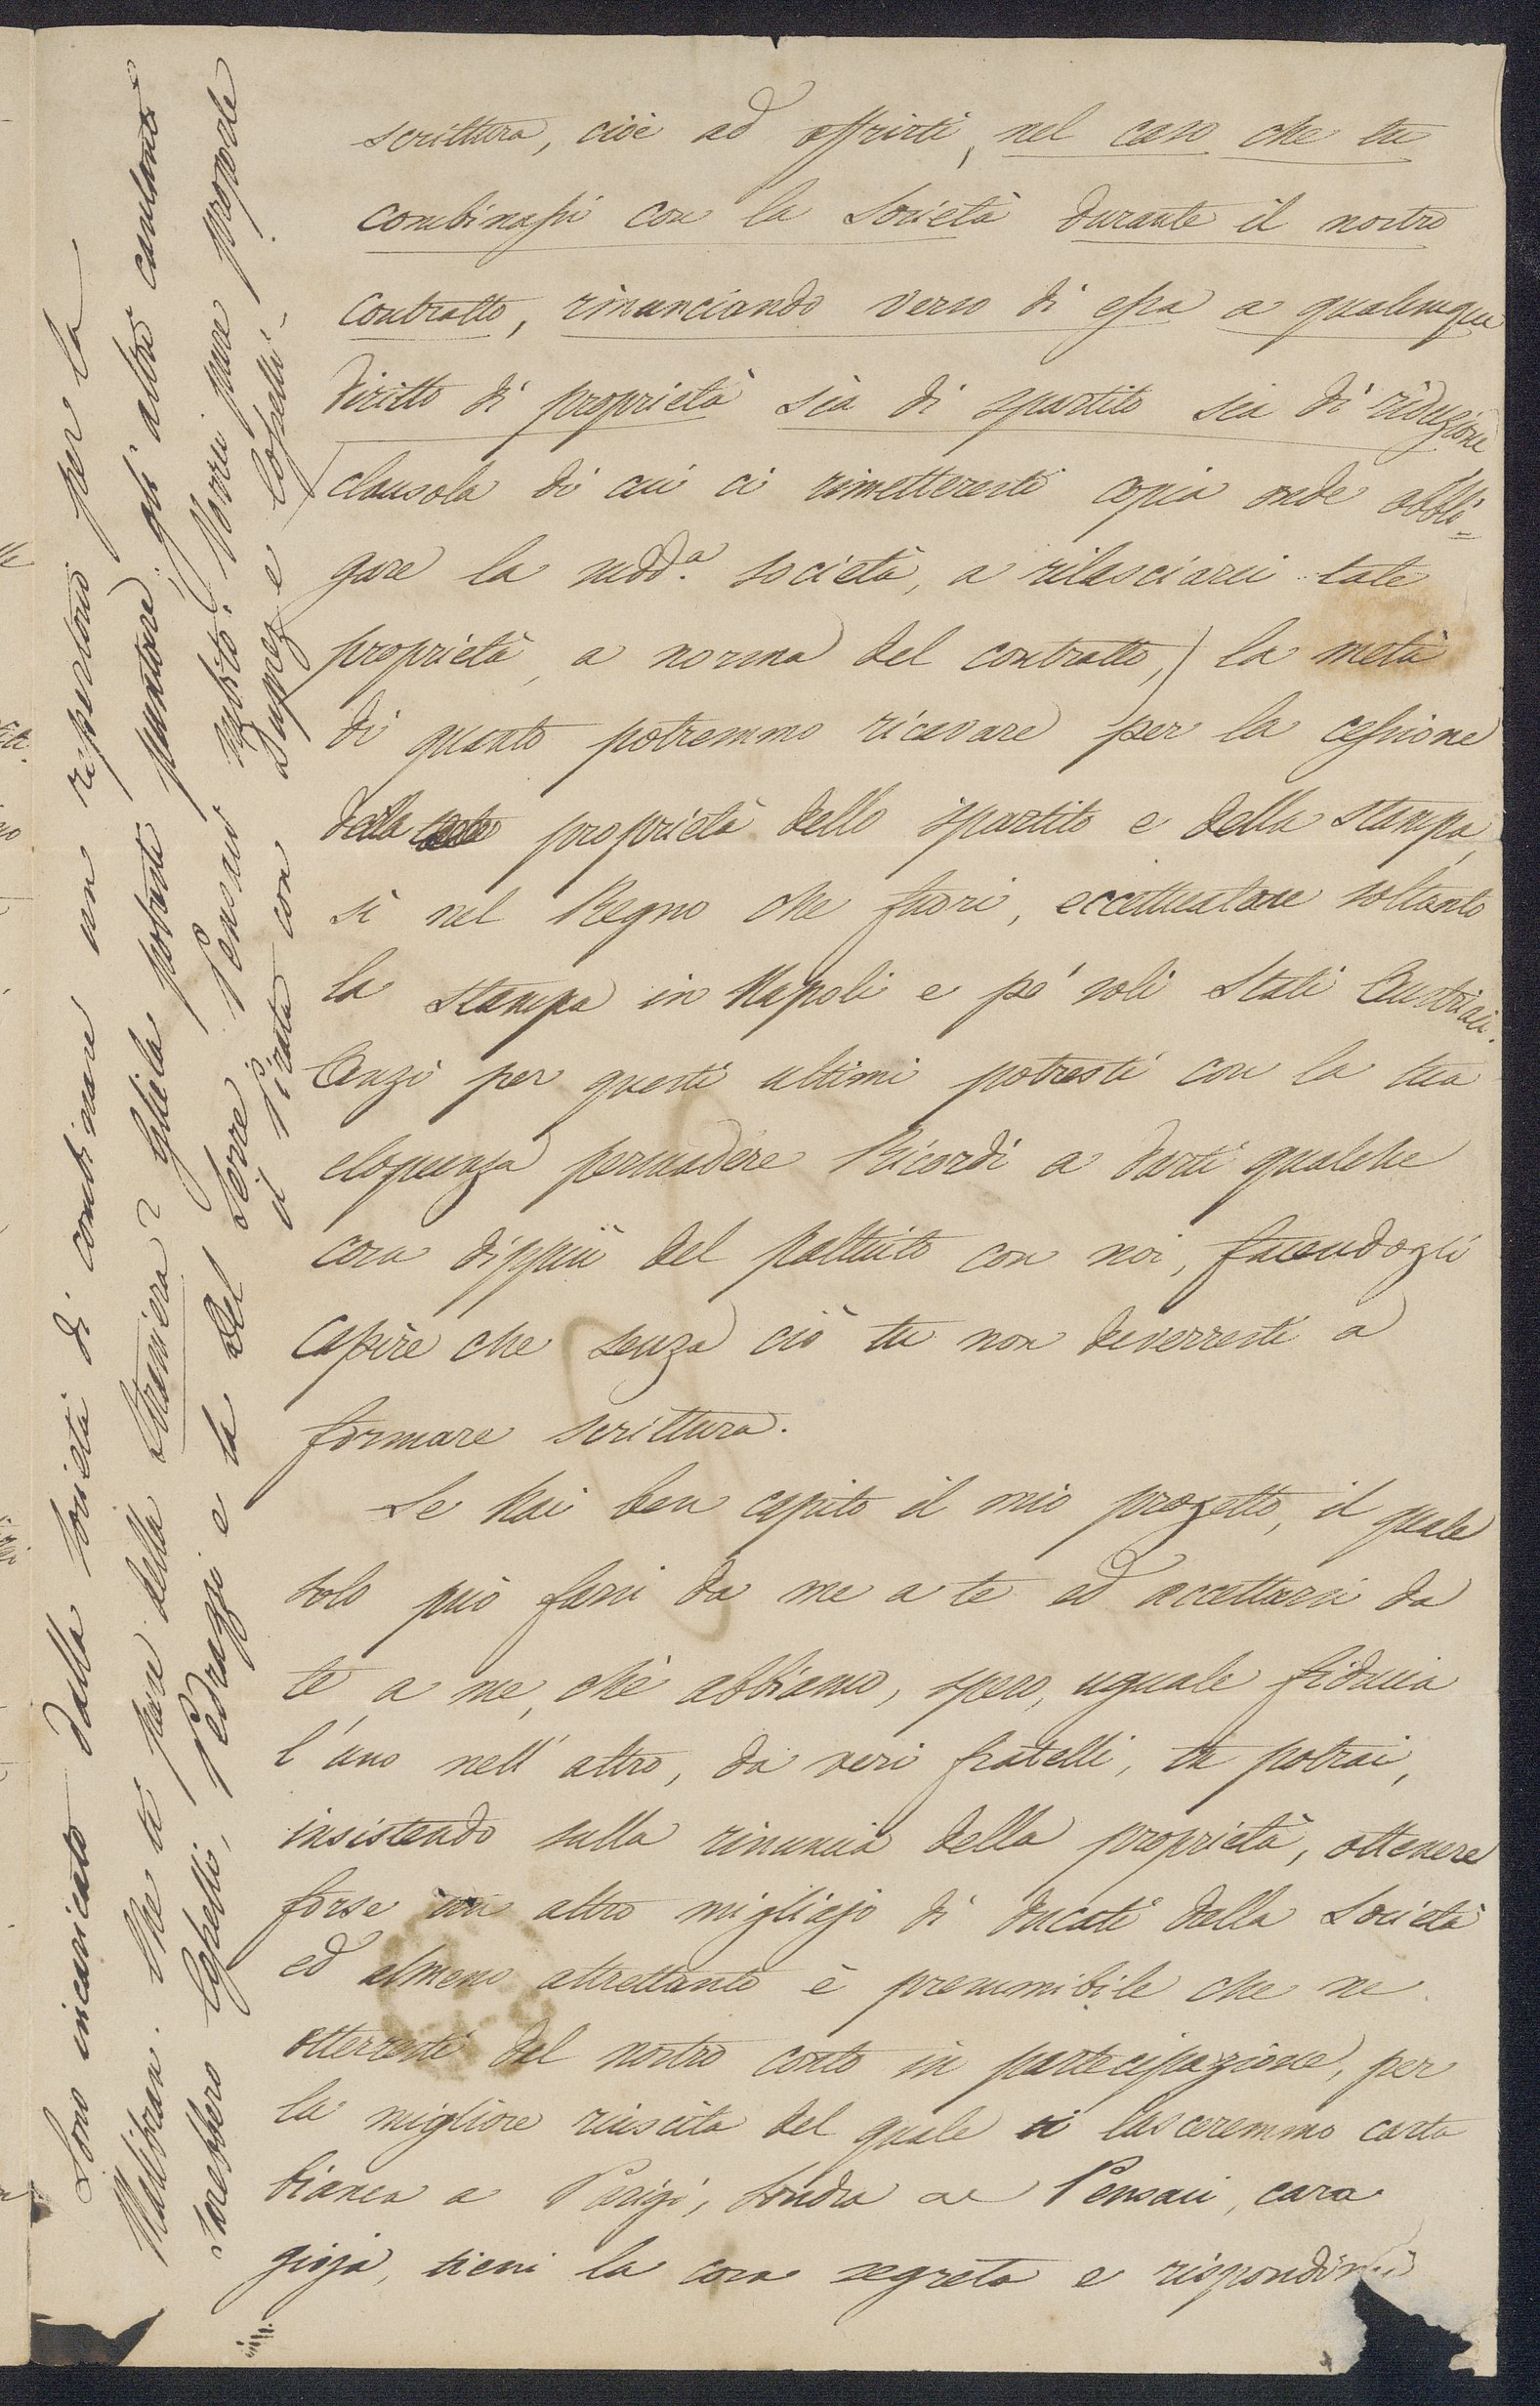 scrittura, cioè ad offrirti, nel caso che tu
combinassi con la Società durante il nostro
contratto, rinunciando verso di essa a qualunque
diritto di proprietà sia di spartito sia di riduzione
(clausola di cui ci rimetteresti copia onde obbli=
gare la sudd.a società, a rilasciarci tale
proprietà, a norma del contratto,) la metà
di quanto potremmo ricavare per la cessione
della proprietà dello spartito e della stampa,
sì nel Regno che fuori, eccettuatane soltanto
la stampa in Napoli e pe' soli Stati Austriaci.
Anzi per questi ultimi potresti con la tua
eloquenza persuadere Ricordi a darti qualche
cosa dippiù del pattuito con noi, facendogli
capire che senza ciò tu non deverresti a
formare scrittura.
Se hai ben capito il mio progetto, il quale
solo può farsi da me a te ed accettarsi da
te a me, chè abbiamo, spero, uguale fiducia
l'uno nell'altro, da veri fratelli, tu potrai,
insistendo sulla rinuncia della proprietà, ottenere
forse un altro migliajo di ducati dalla Società
ed almeno altrettanto è presumibile che ne
otterresti dal nostro conto in partecipazione, per
la migliore riuscita del quale ti lasceremmo carta
bianca a Parigi, Londra ae Pensaci, cara
gioja, tieni la cosa segreta e rispondimi
Sono incaricato dalla Società di combinare un repertorio per la
Malibran. Che te pare della Straniera? Gliela potresti puntare? gli altri cantanti
sarebbero Coselli, Pedrazzi e la Del Serre. Pensaci subito. Vorrei pure proporle
il Pirata con Duprez e Coselli.